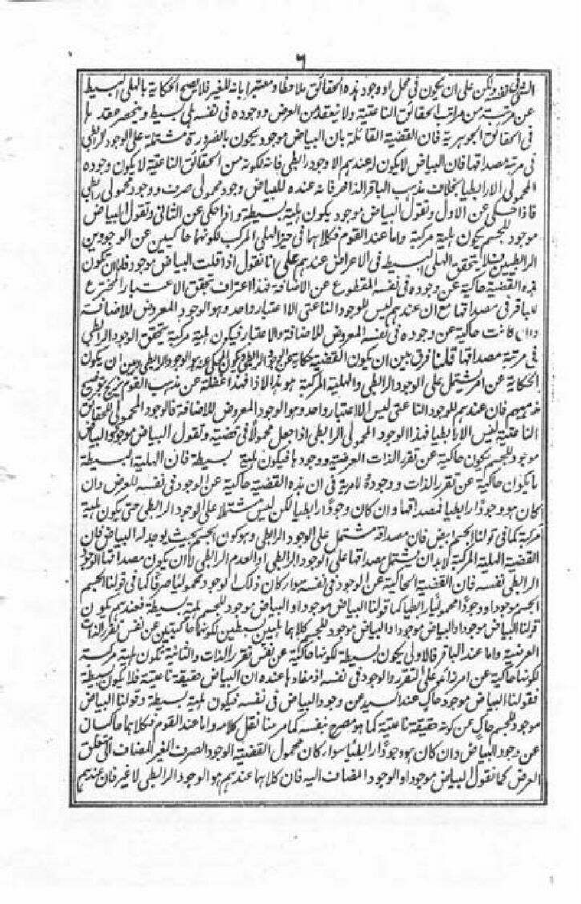 ٦
عن مرتبة من مراتب الحقائق الناعتية ولا ينعقد من العرض ووجوده في نفسه هلي بسيط وينحصر عقد
في الحقائق الجوهرية فان القضية القائلة بان البياض موجود يكون بالضرورة مشتملة على الوجود الرابطي
في مرتبة مصداقها فان البياض لا يكون له عندهم الا وجود رابطي فانه لكونه من الحقائق الناعتية لا يكون وجوده
المحمولي الا رابطيا بخلاف مذهب الباقر الداماد فانه عنده للبياض وجود محمولي صرف ووجود محمولي رابطي
فاذا حكى عن الاول ونقول البياض موجود يكون هلية بسيطة واذا حكى عن الثاني ونقول البياض
موجود للجسم يكون هلية مركبة واما عند القوم فكلاهما في حيز الهلي المركب لكونهما حاكيين عن الوجودين
الرابطيين فلا يتحقق الهلي البسيط في الاعراض عندهم على انا نقول اذا قلت البياض موجود فلا
هذه القضية حاكية عن وجوده في نفسه المقطوع عن الاضافة فهذا اعتراف تحقق الاعتبار المخترع
للباقر في مصداقها مع ان عندهم ليس للوجود الناعتي الا اعتبار واحد وهو الوجود المعروض للاضافة
وان كانت حاكية عن وجوده في نفسه المعروض للاضافة والاعتبار فيكون هلية مركبة يتحقق الوجود الرابطي
في مرتبة مصداقها قلنا فرق بين ان يكون القضية حكاية عن الوجود الرابطي وبين ان يكون
الحكاية عن امر يشتمل على الوجود الرابطي والهلية المركبة هو هذا لا ذا فهذا غفلة عن مذهب القوم
مذهبهم فان عندهم للوجود الناعتي ليس الا اعتبار واحد وهو الوجود المعروض للاضافة فالوجود المحمولي للحقائق
الناعتية ليس الا رابطيا فهذا الوجود المحمولي الرابطي اذا جعل محمولا في قضية ونقول البياض موجود او البياض
موجود للجسم يكون حاكية عن تقرر الذات العرضية ووجودها فيكون هلية بسيطة فان الهلية البسيطة
ما يكون حاكية عن تقرر الذات ووجوده ولا مرية في ان هذه القضية حاكية عن الوجود في نفسه للعرض وان
كان هو وجودا رابطيا فمصداقها وان كان وجودا رابطيا لكن ليس مشتملا على الوجود الرابطي حتى يكون هلية
مركبة كما في قولنا الجسم ابيض فان مصداقه مشتمل على الوجود الرابطي وهو كون الجسم بحيث يوجد له البياض فان
القضية الهلية المركبة لا بد ان يشتمل مصداقها على الوجود الرابطي او العدم الرابطي لا ان يكون مصداقها الوجود
الرابطي نفسه فان القضية الحاكية عن الوجود في نفسه سواء كان ذلك الوجود محمولا صرفا كما في قولنا الجسم
الجسم موجود او وجودا محموليا رابطيا كما قولنا البياض موجود او البياض موجود للجسم هلية بسيطة فعندهم يكون
قولنا البياض موجود او البياض موجود للجسم كلاهما هليين بسيطين لكونهما حاكيتين عن نفس تقرر الذات
العرضية واما عند الباقر فالاولى يكون بسيطة لكونها حاكية عن نفس تقرر الذات والثانية يكون هلية مركبة
لكونها حاكية عن امر زائد على التقرر والوجود في نفسه اذ مفادها عنده ان البياض حقيقة ناعتية فلا يكون بسيطة
فقولنا البياض موجود حاك عند السيد عن وجود البياض في نفسه فيكون هلية بسيطة وقولنا البياض
موجود للجسم حاك عن كونه حقيقة ناعتية كما هو مصرح بنفسه كما مر منا نقل كلامه واما عند القوم فكلاهما حاكيان
عن وجود البياض وان كان هو وجودا رابطيا سواء كان محمول القضية الوجود الصرف الغير المضاف الى
العرض كما نقول البياض موجود او الوجود المضاف اليه فان كلاهما عندهم هو الوجود الرابطي لا غير فان عندهم